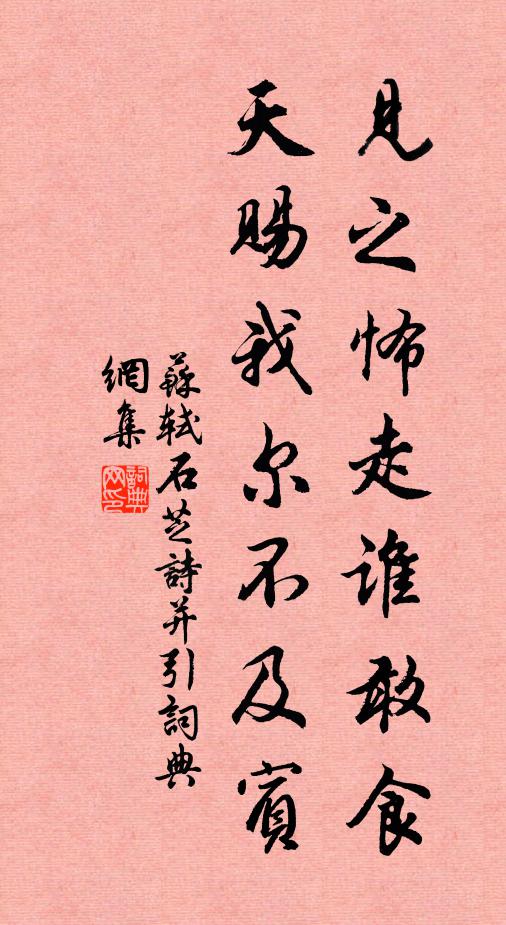 見之怖走誰敢食
天賜我尔不及賓
蘇軾石芝詩并引詞典
網集
詞典
网印